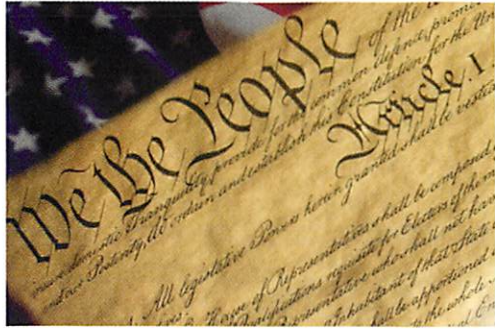 We the People of the
provide for the common defence, promo
domestic Tranquility
and our Posterity, do ordain and establish this Constitution for the Uni
Article. I.
All legislative Powers herein granted shall be vested
House of Representatives shall be composed
Qualifications requisite for Electors of the m
Representative who shall not hav
Inhabitant of that State
shall be apportioned
the whole